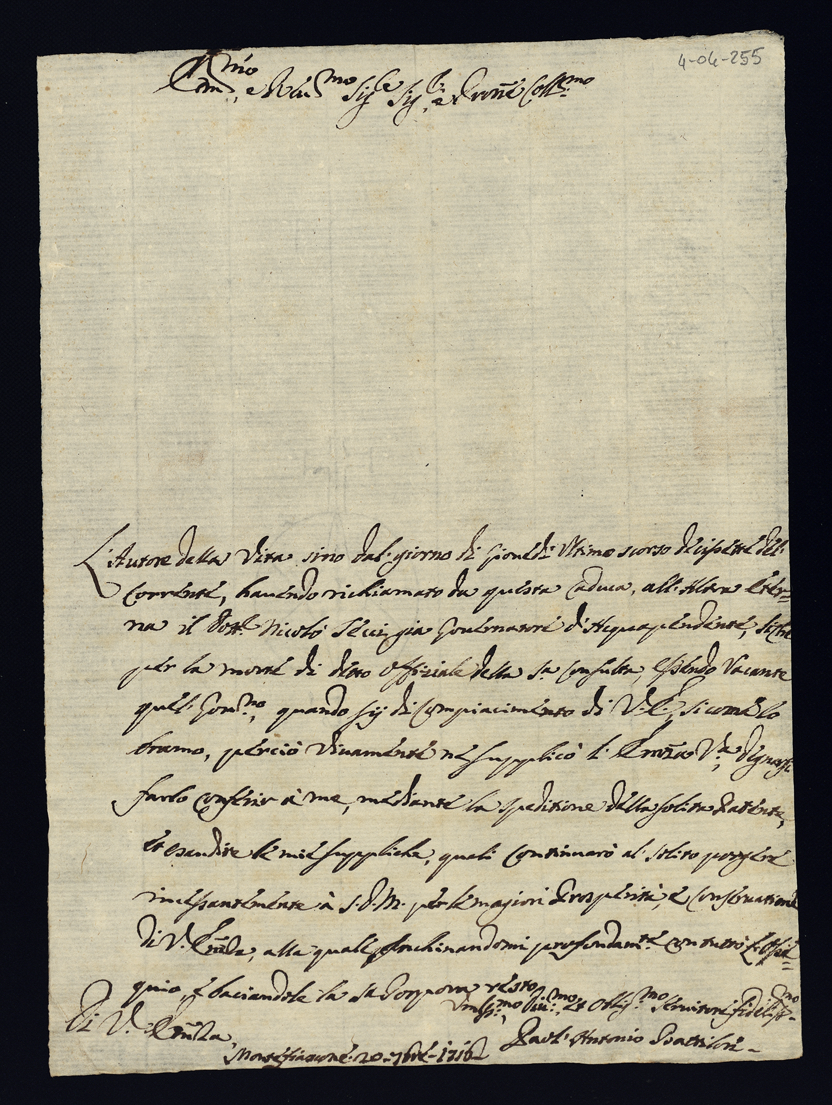 4-04-255
Em.mo e Re.mo Sig.e Sig.e e Prone Coll.mo
L'Autore della Vita sino dal giorno di Giovedi Ultimo scorso decisette del
Corrente, havendo richiamato da questa caduca, all'Altra Eter=
na il Dott.e Nicolò già Governatore d'Acquapendente, siche
per la morte di detto Offiziale della S.a Consulta, essendo Vacante
quel Gov.no, quando sij di Compiacimento di V.E., si come lo
bramo, perciò vivamente ne supplicò l'Emza V.a degnarsi
farlo conferir à me, mediante la speditione della solita Patente,
et esaudire le mie suppliche, quali continuarò al solito porgere
incessantemente à S.D.M. per le magiori Prosperità, e Conservatione
di V. Emza, alla quale inchinandomi profondam.te con tutto l'Osse=
quio, e baciandole la S.a Porpora resto
Di V. Emza Um.mo Dev.mo, et Obblig.mo Servitore fidel.mo
Montefiascone 20 7bre 1716 Paol' Antonio